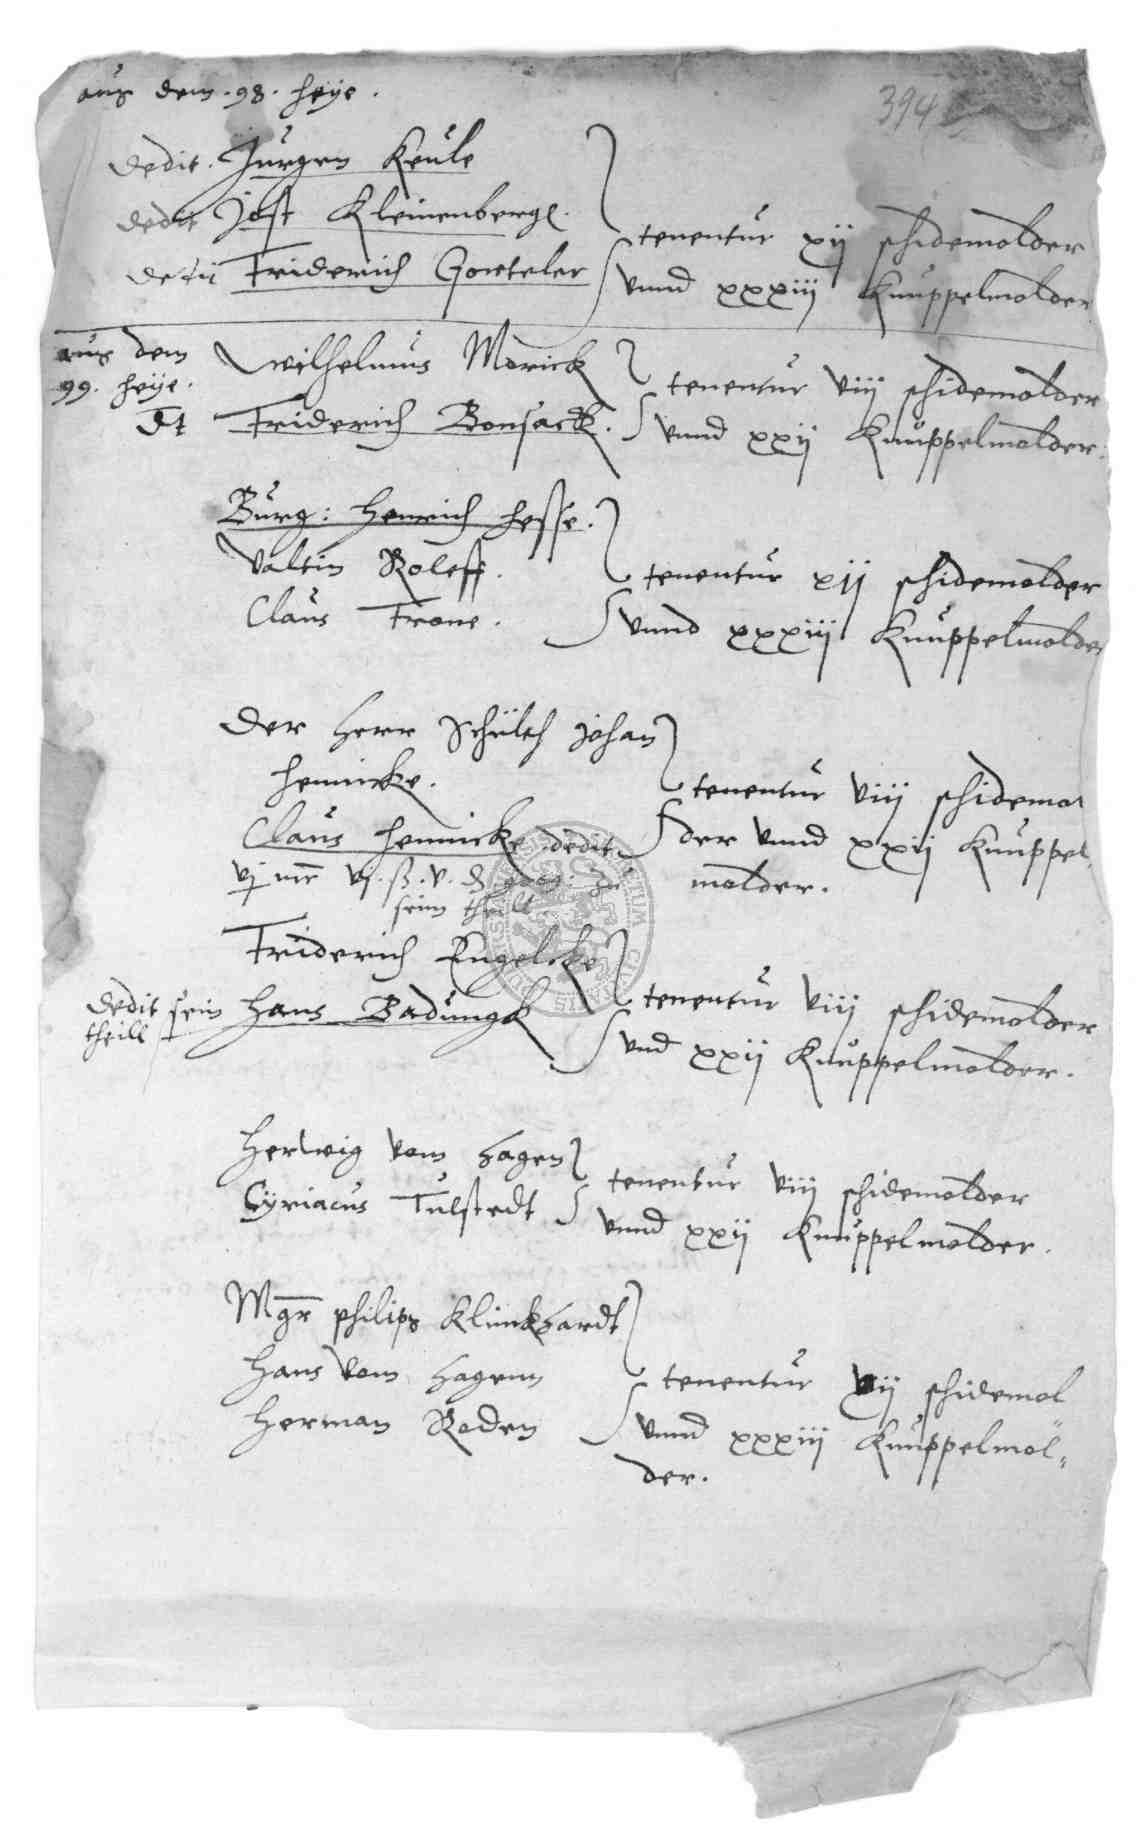 394
aus dem .98. heÿe.
dedit. Jurgen Keule
dedit Jost Kleinenbergk.
dedit Friderich Gorteler
tenentur xij schidemolder
vnnd xxxiij Knuppelmolder
aus dem
99. heÿe.
Wilhelmus Morick
dt Friderich Bonsack.
tenentur viij schidemolder
vnnd xxij Knuppelmolder.
Burg: Henrich Hesse.
Valtin Roleff.
Claus Trone.
tenentur xij schidemolder
vnnd xxxiij Knuppelmolder
Der Herr Schulth Johan
Hennicke.
Claus Hennicke dedit
vj mr vj. ß. v. d zu
seim theill
tenentur viij schidemol
der vnnd xxij Knuppel
molder.
Friderich Engelcke
dedit sein
theill
Hans Badungk
tenentur viij schidemolder
vnd xxij Knuppelmolder.
Herwig vom Hagen
Cyriacus Tulstedt
tenentur viij schidemolder
vnnd xxij Knuppelmolder.
Mgr Philips Klinkhardt
Hans vom Hagenn
Herman Roden
tenentur xij schidemol
vnnd xxxiij Knuppelmol=
der.